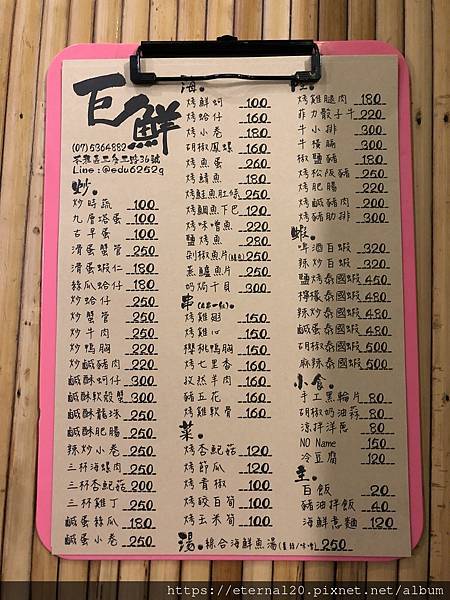 巨鮮
(07)5364882
苓雅區三多三路36號
Line:@edu6252q
炒.
炒時蔬 100
九層塔蛋 100
古早蛋 100
滑蛋蟹管 250
滑蛋蝦仁 180
絲瓜蛤仔 180
炒蛤仔 250
炒蟹管 250
炒牛肉 250
炒鴨胸 220
炒鹹豬肉 220
鹹酥蚵仔 300
鹹酥軟殼蟹 300
鹹酥龍珠 250
鹹酥肥腸 250
辣炒小卷 250
三杯海螺肉 250
三杯杏鮑菇 200
三杯雞丁 250
鹹蛋絲瓜 180
鹹蛋小卷 250
海.
烤鮮蚵 100
烤蛤仔 160
烤小卷 180
胡椒鳳螺 160
烤魚蛋 260
烤鯖魚 180
烤鮭魚肚條 250
烤鯛魚下巴 120
烤味噌魚 220
鹽烤魚 280
剁椒魚片 250
蒸鱸魚片 250
奶焗干貝 300
串.
烤雞翅 150
烤雞心 150
櫻桃鴨胸 150
烤七里香 160
孜然羊肉 160
豬五花 160
烤雞軟骨 160
菜.
烤杏鮑菇 120
烤節瓜 120
烤青椒 100
烤皎白筍 100
烤玉米筍 100
湯.綜合海鮮魚湯(薑絲/味噌) 250
陸.
烤雞腿肉 180
菲力骰子牛 220
牛小排 300
牛橫膈 300
椒鹽豬 180
烤松阪豬 250
烤肥腸 220
烤鹹豬肉 200
烤豬肋排 300
蝦.
啤酒白蝦 320
辣炒白蝦 320
鹽烤泰國蝦 450
檸檬泰國蝦 480
辣炒泰國蝦 480
鹹蛋泰國蝦 480
胡椒泰國蝦 500
麻辣泰國蝦 500
小食.
手工黑輪片 80
胡椒奶油菇 80
涼拌洋蔥 80
NO Name 150
冷豆腐 120
主.
白飯 20
豬油拌飯 40
海鮮意麵 120
https://eternal20.pixnet.net/album